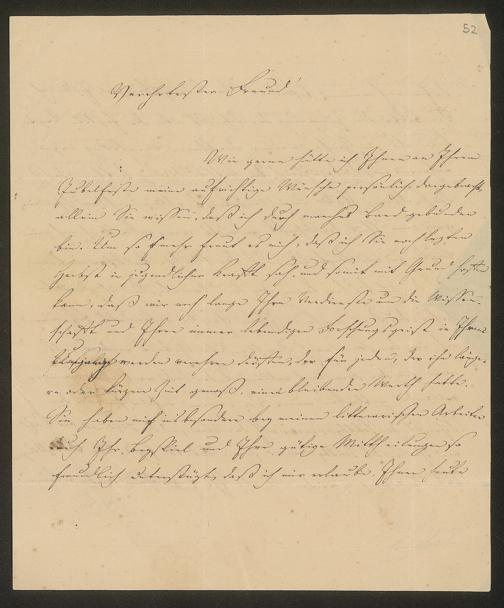 52
Verehrtester Freund!
Wie gerne hätte ich Ihnen an Ihrem
Jubelfeste meine aufrichtige Wünsche persönlich dargebracht,
allein Sie wissen, daß ich durch manches Band gebunden
bin. Um so mehr freut es mich, daß ich Sie noch letzten
Herbst in jugendlicher Kraft sah, und somit mit Grund hoffen
kann, daß wir noch lange Ihre Verdienste um die Wissen-
schaft und Ihren immer lebendigen Forschungsgeist in Ihrem
werden verehren dürfen, der für jeden, der ihn länge-
re oder kürzere Zeit genoß, einen bleibenden Werth hatte.
Sie haben mich insbesondere bey meinen litterarischen Arbeiten
durch Ihr Beyspiel und Ihre gütige Mittheilungen so
freundlich unterstützt, daß ich mir erlaube, Ihnen heute